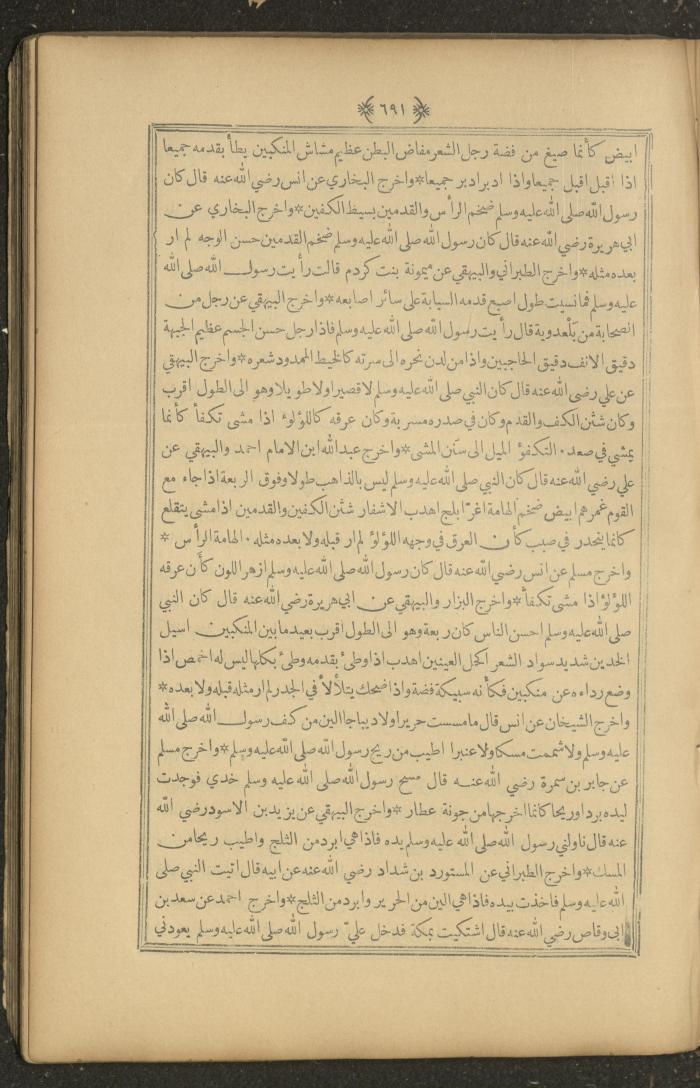 ﴿ ٦٩١ ﴾
ابيض كأنما صيغ من فضة رجل الشعر مفاض البطن عظيم مشاش المنكبين يطأ بقدمه جميعا
اذا اقبل اقبل جميعا واذا ادبر ادبر جميعا * واخرج البخاري عن انس رضي الله عنه قال كان
رسول الله صلى الله عليه وسلم ضخم الرأس والقدمين بسيط الكفين * واخرج البخاري عن
ابي هريرة رضي الله عنه قال كان رسول الله صلى الله عليه وسلم ضخم القدمين حسن الوجه لم ار
بعده مثله * واخرج الطبراني والبيهقي عن ميمونة بنت كردم قالت رأيت رسول الله صلى الله
عليه وسلم فما نسيت طول اصبع قدمه السبابة على سائر اصابعه * واخرج البيهقي عن رجل من
الصحابة من بلعدوية قال رأيت رسول الله صلى الله عليه وسلم فاذا رجل حسن الجسم عظيم الجبهة
دقيق الانف دقيق الحاجبين واذا من لدن نحره الى سرته كالخيط الممدود شعره * واخرج البيهقي
عن علي رضي الله عنه قال كان النبي صلى الله عليه وسلم لا قصير اولا طويلا وهو الى الطول اقرب
وكان شثن الكف والقدم وكان في صدره مسربة وكان عرقه كاللؤلؤ اذا مشى تكفأ كأنما
يمشي في صعد . التكفؤ الميل الى سنَن المشى * واخرج عبد الله ابن الامام احمد والبيهقي عن
علي رضي الله عنه قال كان النبي صلى الله عليه وسلم ليس بالذاهب طولا وفوق الربعة اذا جاء مع
القوم غمرهم ابيض ضخم الهامة اغرّ ابلج اهدب الاشفار شثن الكفين والقدمين اذا مشى يتقلع
كانما ينحدر في صبب كأن العرق في وجهه اللؤلؤ لم ار قبله ولا بعده مثله . الهامة الرأس *
واخرج مسلم عن انس رضي الله عنه قال كان رسول الله صلى الله عليه وسلم ازهر اللون كأَن عرقه
اللؤلؤ اذا مشى تكفأ * واخرج البزار والبيهقي عن ابي هريرة رضي الله عنه قال كان النبي
صلى الله عليه وسلم احسن الناس كان ربعة وهو الى الطول اقرب بعيد ما بين المنكبين اسيل
الخدين شديد سواد الشعر اكحل العينين اهدب اذا وطئ بقدمه وطئ بكلها ليس له اخمص اذا
وضع رداءه عن منكبين فكأنه سبيكة فضة واذا ضحك يتلألأ في الجدر لم ار مثله قبله ولا بعده *
واخرج الشيخان عن انس قال ما مسست حريرا ولا ديباجا الين من كف رسول الله صلى الله
عليه وسلم ولا شممت مسكا ولا عنبرا اطيب من ريح رسول الله صلى الله عليه وسلم * واخرج مسلم
عن جابر بن سمرة رضي الله عنه قال مسح رسول الله صلى الله عليه وسلم خدي فوجدت
ليده بردا وريحا كانما اخرجها من جونة عطار * واخرج البيهقي عن يزيد بن الاسود رضي الله
عنه قال ناولني رسول الله صلى الله عليه وسلم يده فاذا هي ابرد من الثلج واطيب ريحا من
المسك * واخرج الطبراني عن المستورد بن شداد رضي الله عنه عن ابيه قال اتيت النبي صلى
الله عليه وسلم فاخذت بيده فاذا هي الين من الحرير وابرد من الثلج * واخرج احمد عن سعد بن
ابي وقاص رضي الله عنه قال اشتكيت بمكة فدخل عليّ رسول الله صلى الله عليه وسلم يعودني